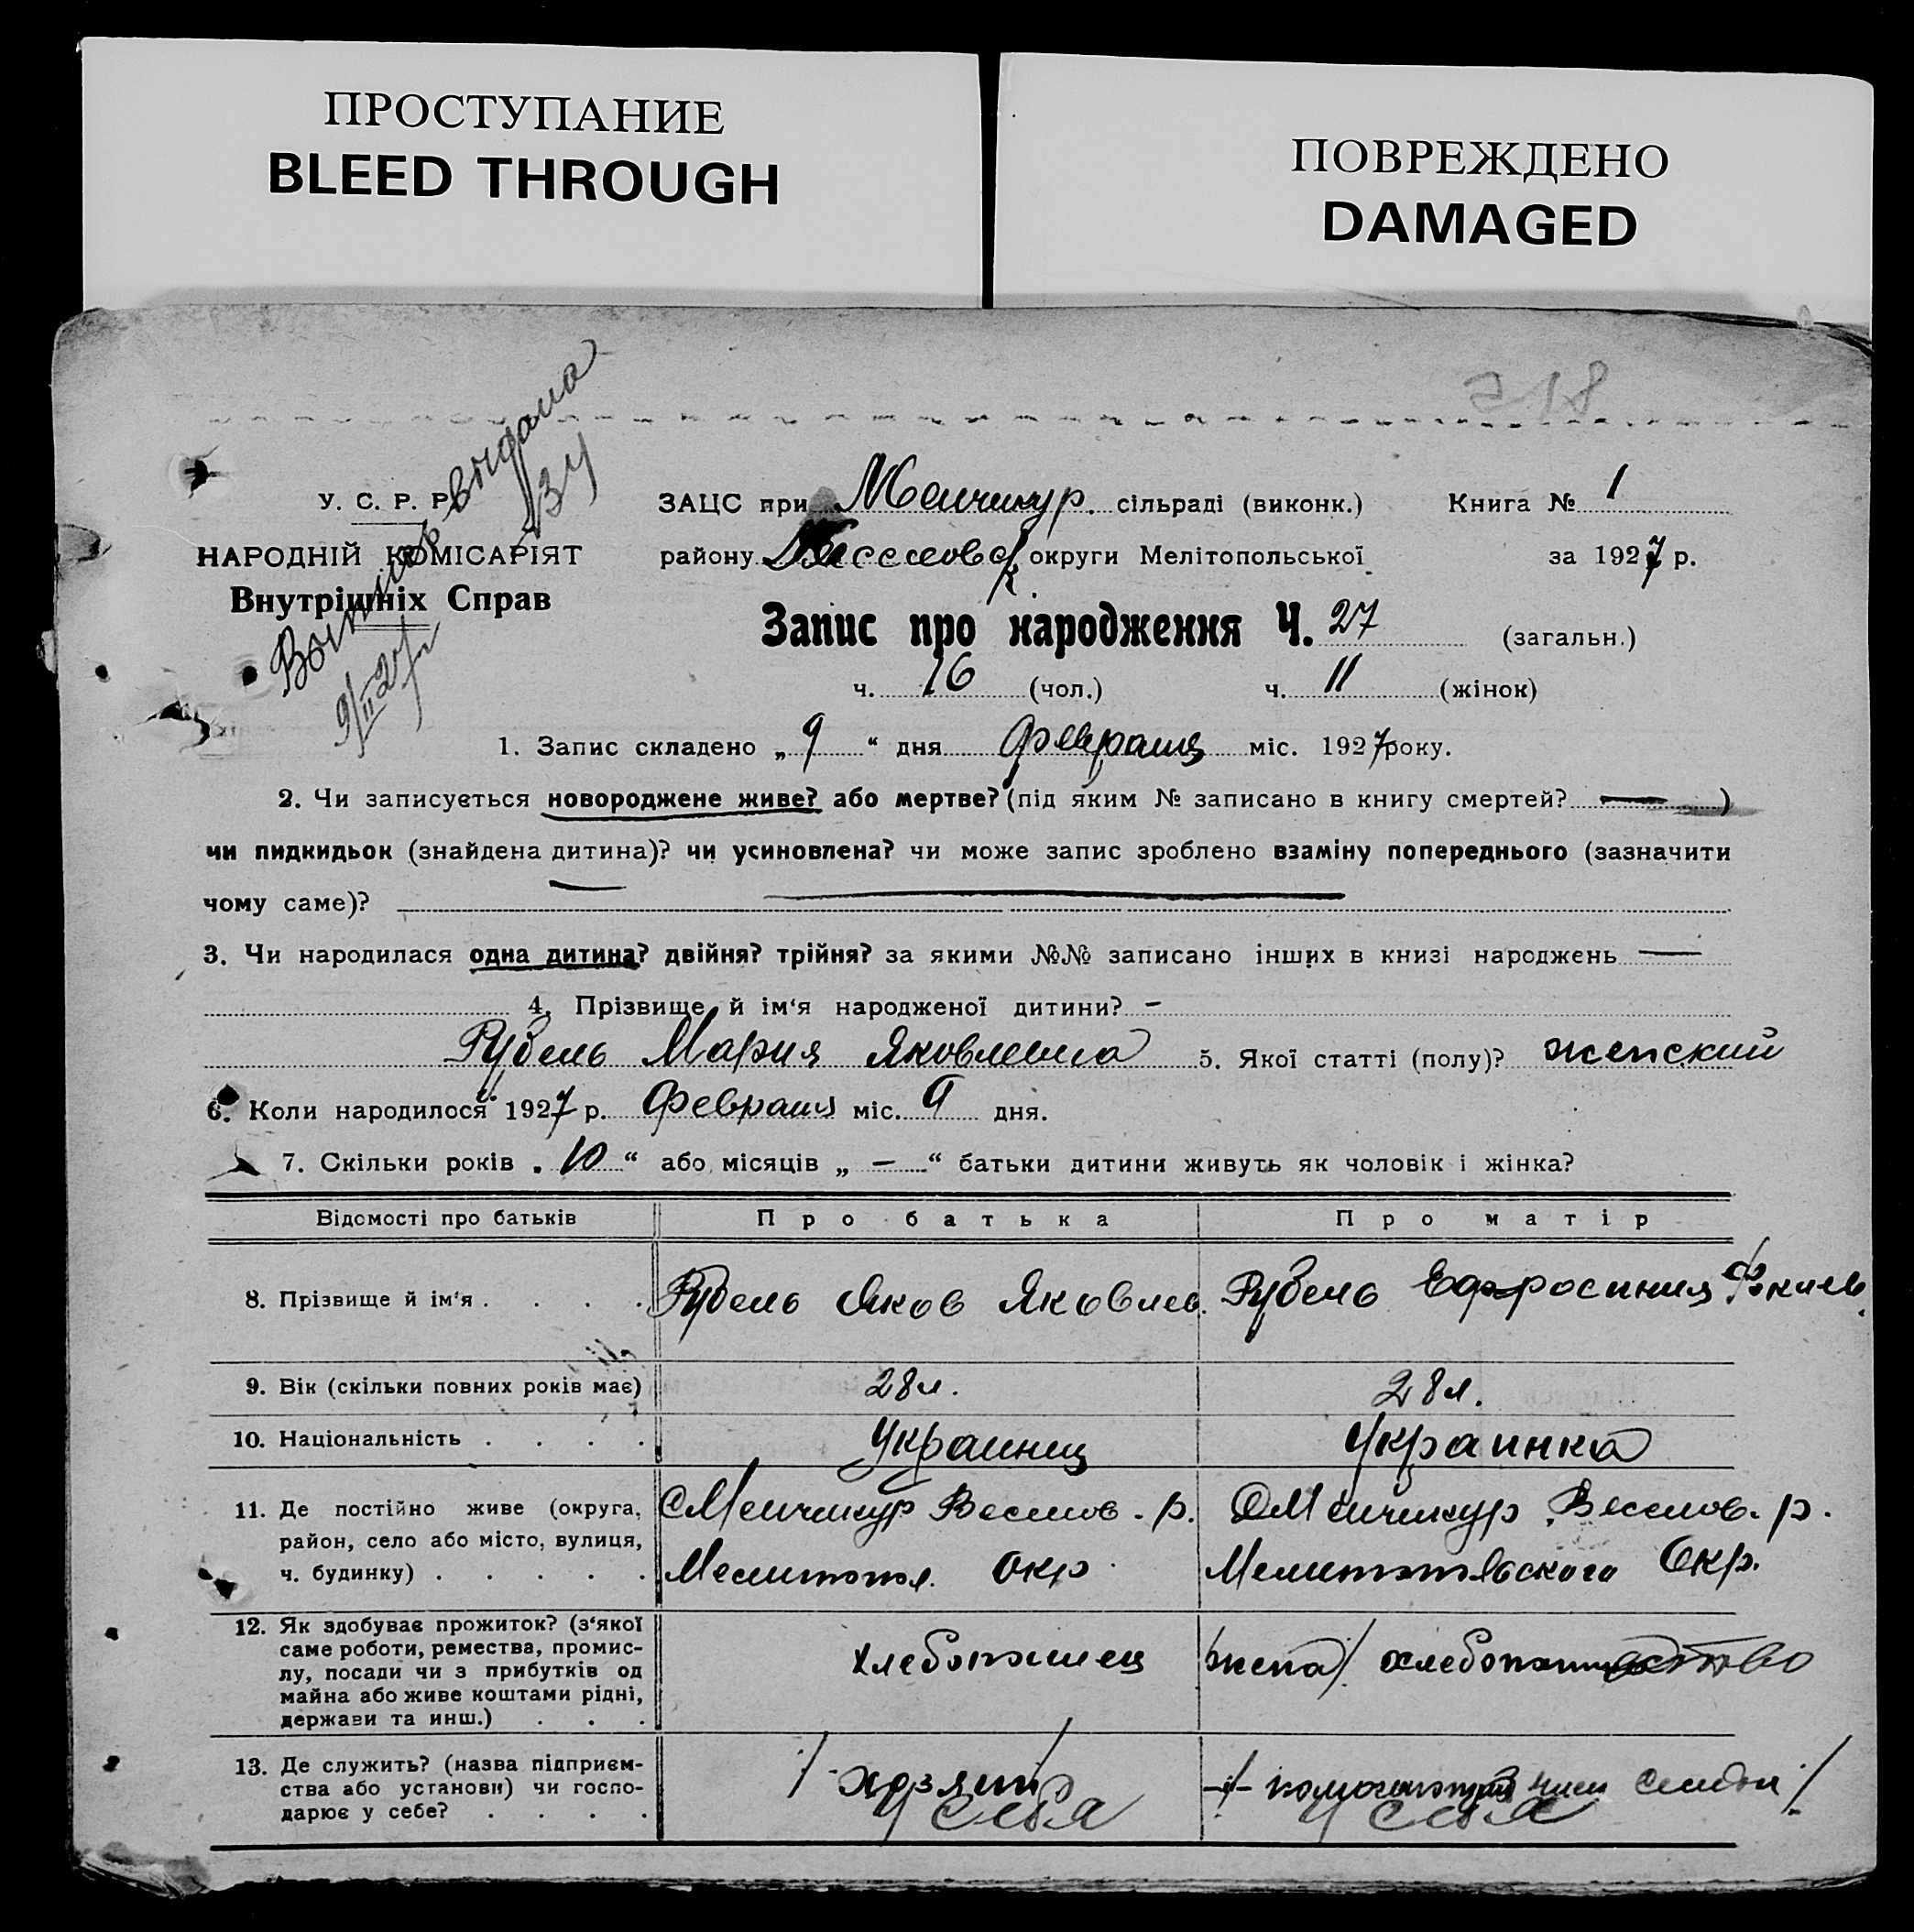 ПРОСТУПАНИЕ
BLEED THROUGH
ПОВРЕЖДЕНО
DAMAGED
518
выдана
У. С. Р. Р.
НАРОДНІЙ КОМІСАРІЯТ
Внутрішніх Справ
9/II 27 г
ЗАЦС при Менчикур. сільраді (виконк.) Книга № 1
району округи Мелітопольської за 1927 р.
Запис про народження Ч. 27 (загальн.)
ч. 16 (чол.) ч. 11 (жінок)
1. Запис складено „ 9 “ дня февраля міс. 1927 року.
2. Чи записується новороджене живе? або мертве? (під яким № записано в книгу смертей? — )
чи пидкидьок (знайдена дитина)? чи усиновлена? чи може запис зроблено взаміну попереднього (зазначити
чому саме)?
3. Чи народилася одна дитина? двійня? трійня? за якими №№ записано інших в книзі народжень —
4. Прізвище й ім‘я народженої дитини? –
Рубель Мария Яковлевна 5. Якої статті (полу)? женский
6. Коли народилося 1927 р. Февраля міс. 9 дня.
7. Скільки років „ 10 “ або місяців „ — “ батьки дитини живуть як чоловік і жінка?
Відомості про батьків Про батька Про матір
8. Прізвище й ім‘я . . . . Рубель Яков Яковлев. Рубель Ефросиния
9. Вік (скільки повних років має) 28 л. 28 л.
10. Національність . . . . Украинец Украинка
11. Де постійно живе (округа, С Менчикур Веселов. р. С Менчикур Веселов. р.
район, село або місто, вулиця,
ч. будинку) . . . . . Мелитопол. Окр. Мелитопольского Окр.
12. Як здобуває прожиток? (з‘якої
саме роботи, ремества, промис-
лу, посади чи з прибутків од хлебопашец /жена/ хлебопашество
майна або живе коштами рідні,
держави та инш.) . . .
13. Де служить? (назва підприєм-
ства або установи) чи госпо- /хозяин/ член семьи/
дарює у себе? . . . . у себя у себя